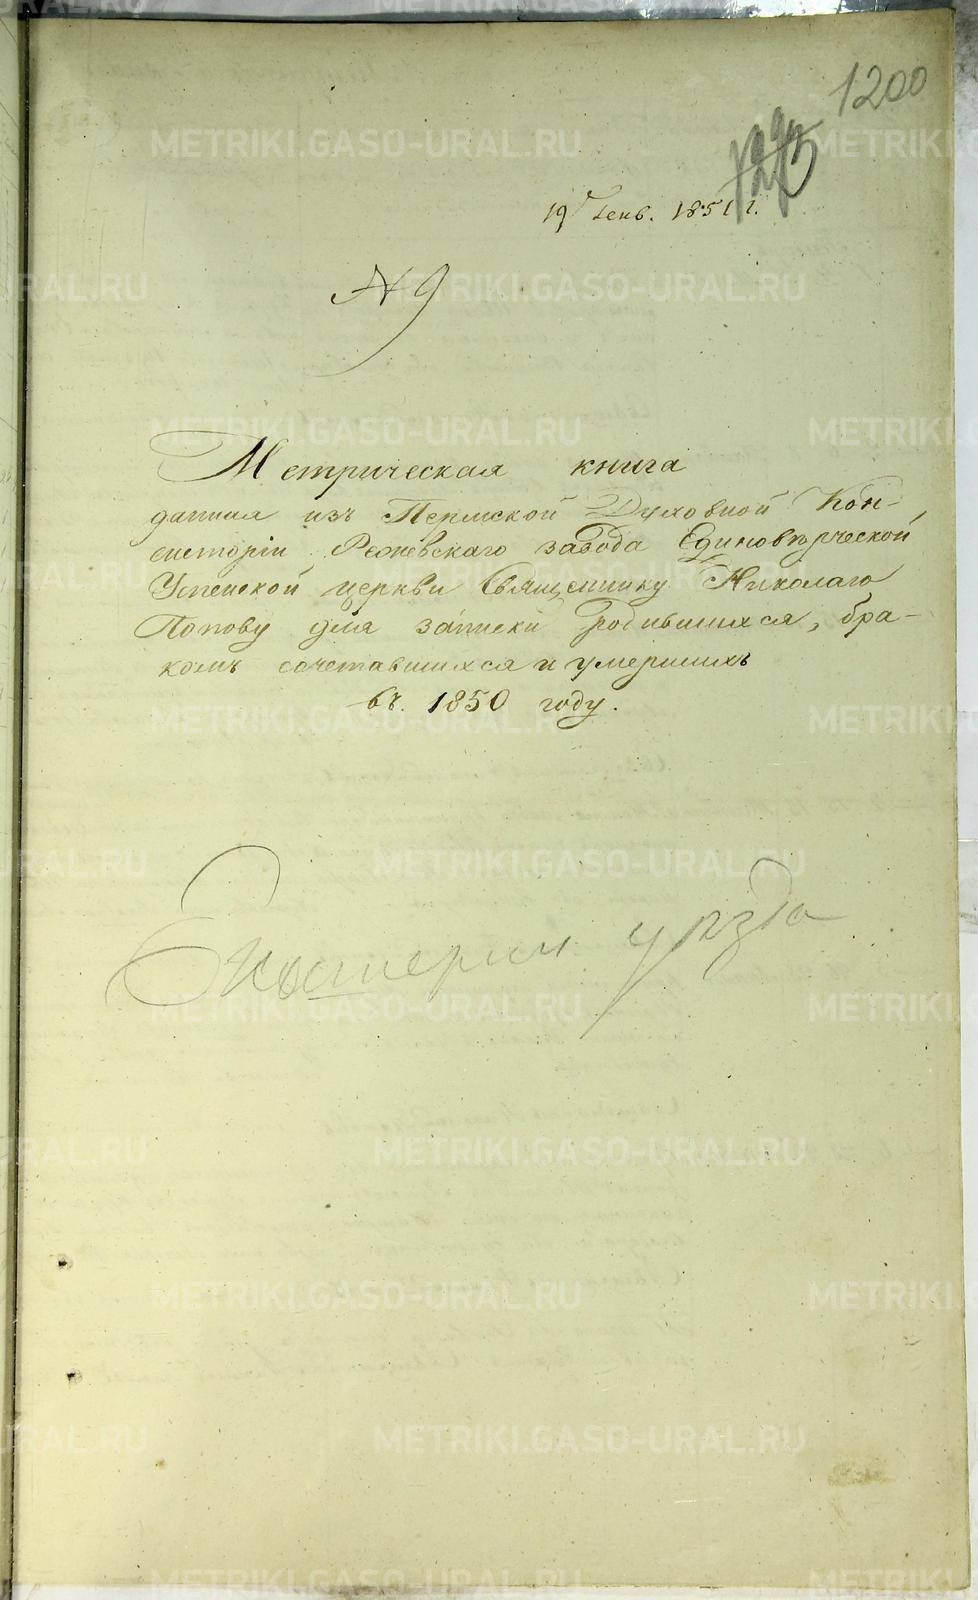 1200
19 Генв. 1851 г.
N 9
Метрическая книга
данная изъ Пермской Духовной Кон-
систоріи, Режевскаго завода Единовѣрческой
Успенской церкви Священнику Николаю
Попову для записки родившихся, бра-
комъ сочетавшихся и умершихъ
въ 1850 году.
Екатерин уѣзда
METRIKI.GASO-URAL.RU